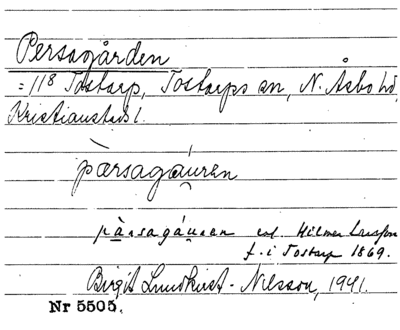 Persagården
= 1/8 Tostarp, Tostarps sn, N. Åsbo hd,
Kristianstads l.
pàrsagáuren
pàrsagáuren enl. Hilmer Larsson
f. i Tostarp 1869.
Birgit Lundkvist-Nilsson, 1941.
Nr 5505.